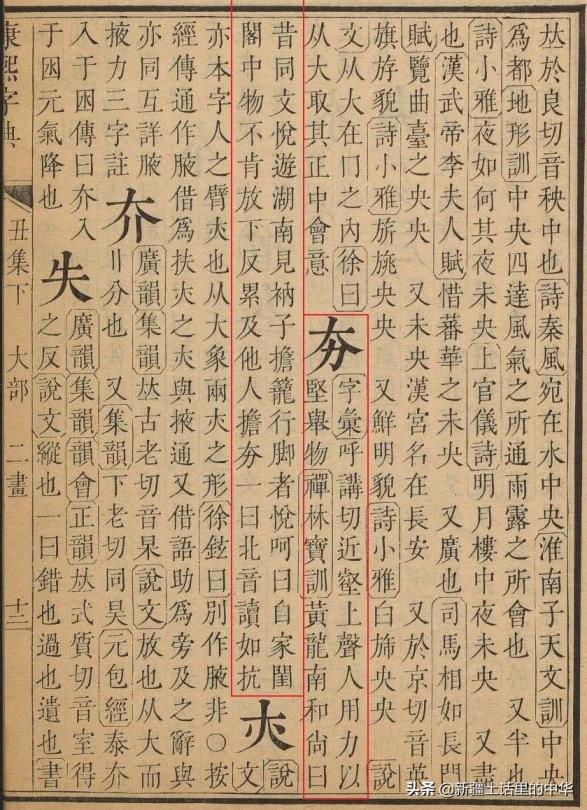 𠀤於良切音秧中也詩秦風宛在水中央淮南子天文訓中央
爲都地形訓中央四達風氣之所通雨露之所會也 又半也
詩小雅夜如何其夜未央上官儀詩明月樓中夜未央 又盡
也漢武帝李夫人賦惜蕃華之未央 又廣也司馬相如長門
賦覽曲臺之央央 又未央漢宮名在長安 又於京切音英
旗斿貌詩小雅旂旐央央 又鮮明貌詩小雅白旆央央 說
文从大在冂之內徐曰
从大取其正中會意
夯
字彙呼講切近壑上聲人用力以
堅舉物禪林寶訓黃龍南和尚曰
昔同文悅遊湖南見衲子擔籠行脚者悅呵曰自家閨
閤中物不肯放下反累及他人擔夯一曰北音讀如抗
𡗕
說
文
亦本字人之臂𡗕也从大象兩𡗕之形徐鉉曰別作腋非○按
經傳通作腋借爲扶𡗕之𡗕與掖通又借語助爲旁及之辭與
亦同互詳腋
掖力三字註
夰
廣韻集韻𠀤古老切音杲說文放也从大而
八分也 又集韻下老切同昊元包經泰夰
入于囦傳曰夰入
于囦元氣降也
失
廣韻集韻韻會正韻𠀤式質切音室得
之反說文縱也一曰錯也過也遺也書
康熙字典
丑集下 大部 二畫 十三
头条 @新疆土话里的中华